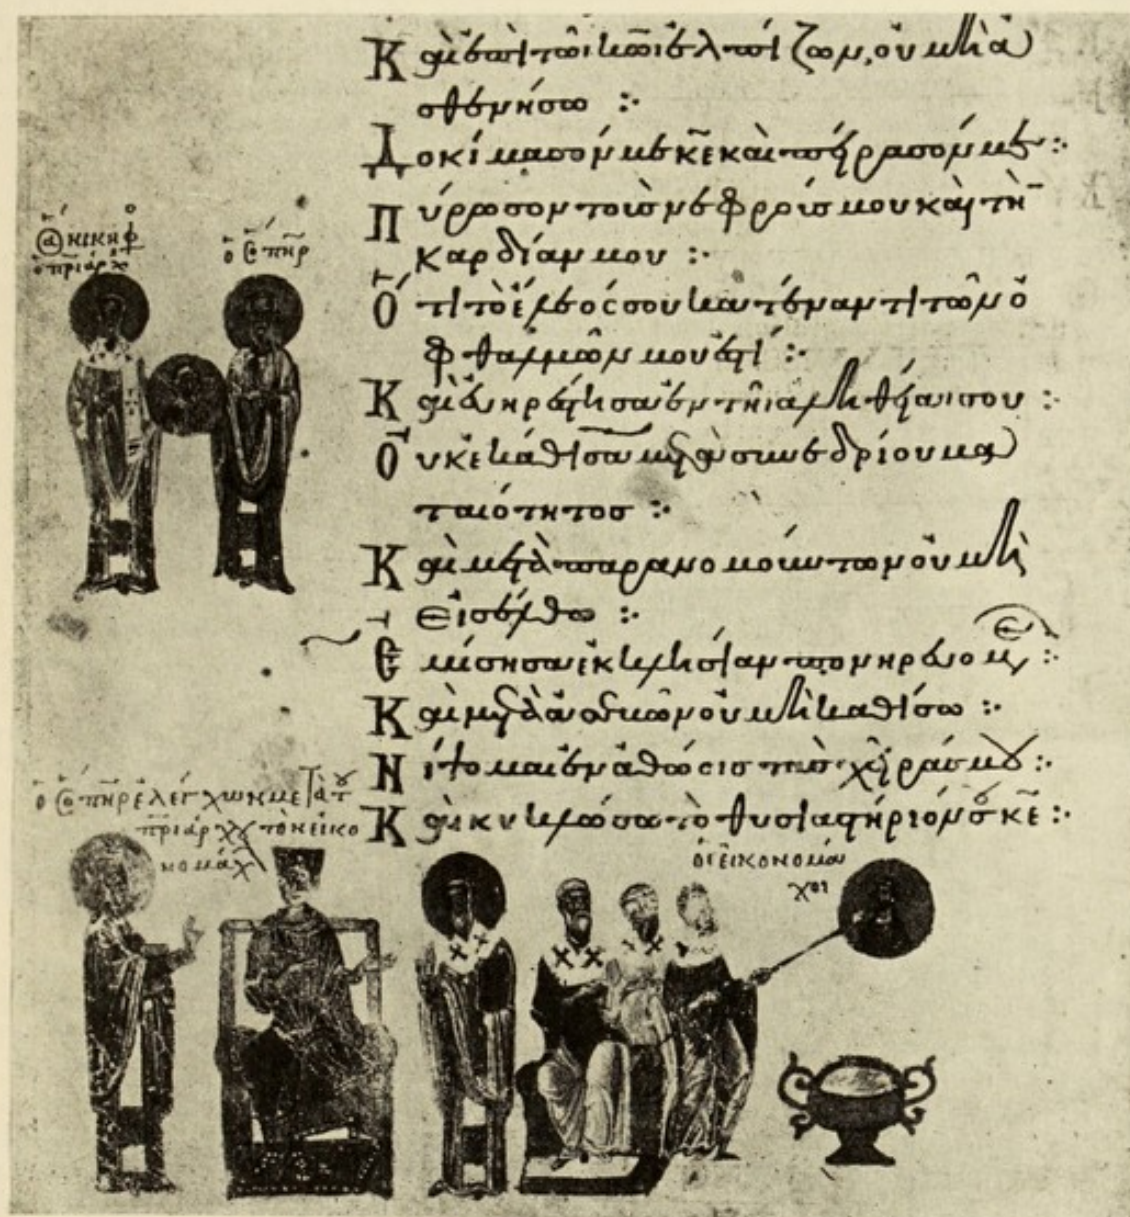 Καὶ ἐπὶ τῶι κ̅ῶι ἐλπίζων, οὐ μὴ ἀ
σθενήσω :·
Δοκίμασόν με κ̅ε̅ καὶ πείρασόν με :·
ὁ ἅ νικηφ
ὁ πριάρχ
ὁ ὅ π̅η̅ρ
Πύρωσον τοὺς νεφρούς μου καὶ τὴν
καρδίαν μου :·
Ὅτι τὸ ἔλεός σου κατέναντι τῶν ὀ
φθαλμῶν μου ἐστί :·
Καὶ εὐηρέστησα ἐν τῆι ἀληθείαι σου :·
Οὐκ ἐκάθισα μετὰ συνεδρίου μα
ταιότητος :·
Καὶ μετὰ παρανομούντων οὐ μὴ
εἰσέλθω :·
Ἐμίσησα ἐκκλησίαν πονηρευομε :·
Καὶ μετὰ ἀδικῶν οὐ μὴ καθίσω :·
Νίψομαι ἐν ἀθώοις τὰς χεῖράς μου :·
Καὶ κυκλώσω τὸ θυσιαστήριόν σου κ̅ε̅ :·
ὁ ὅ π̅η̅ρ ἐλέγχων μετὰ τοῦ
πριάρχου τὸν εἰκο
νομάχ
οἱ εἰκονομά
χοι